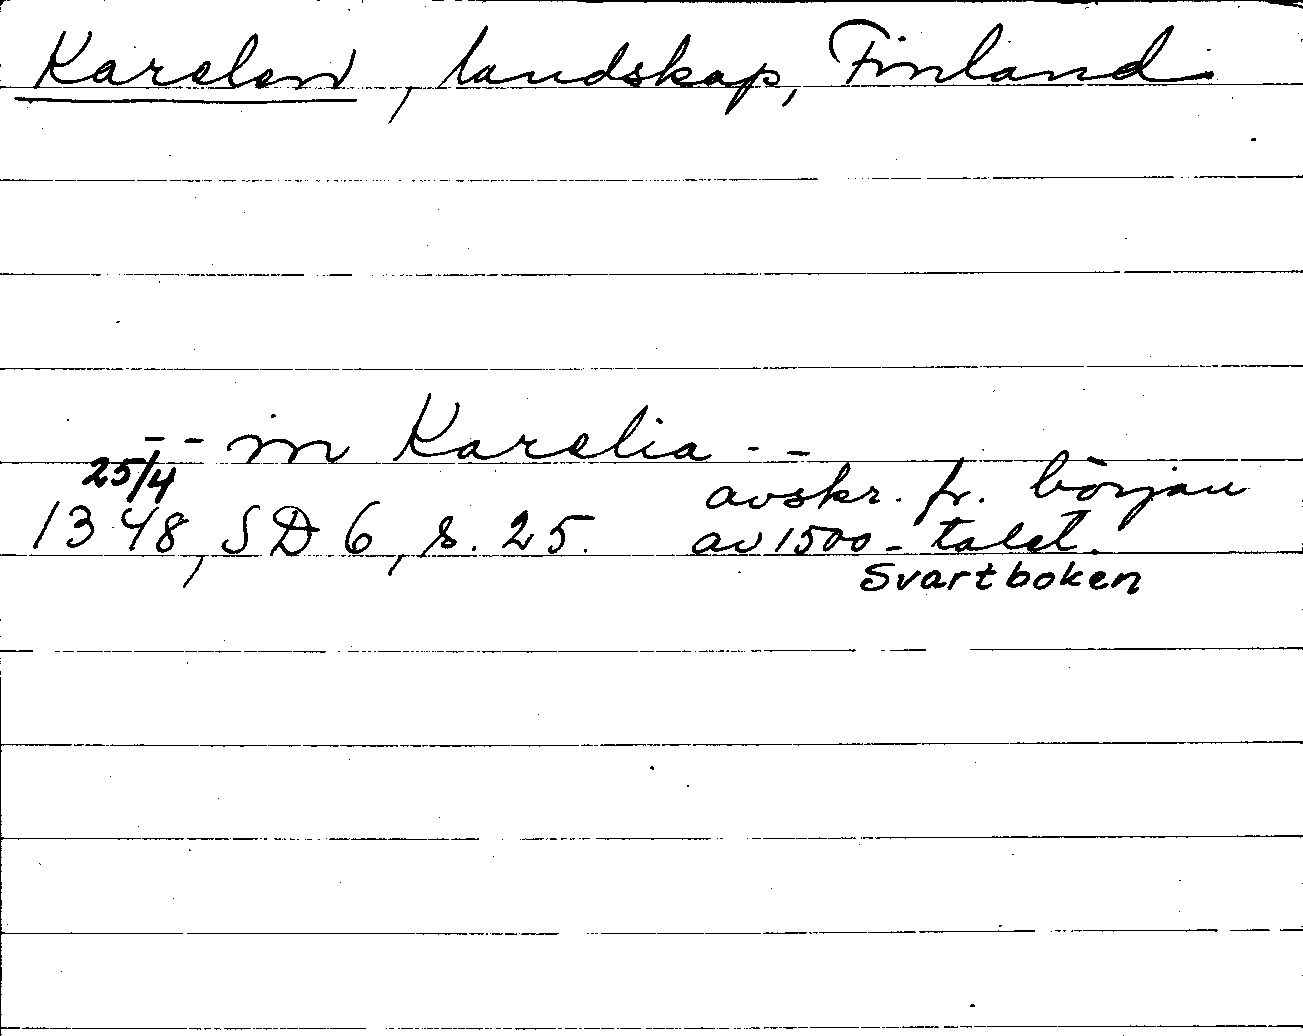 Karelen, landskap, Finland
-- in Karelia --
25/4
1348, SD 6, s. 25.
avskr. fr. början
av 1500-talet.
Svartboken